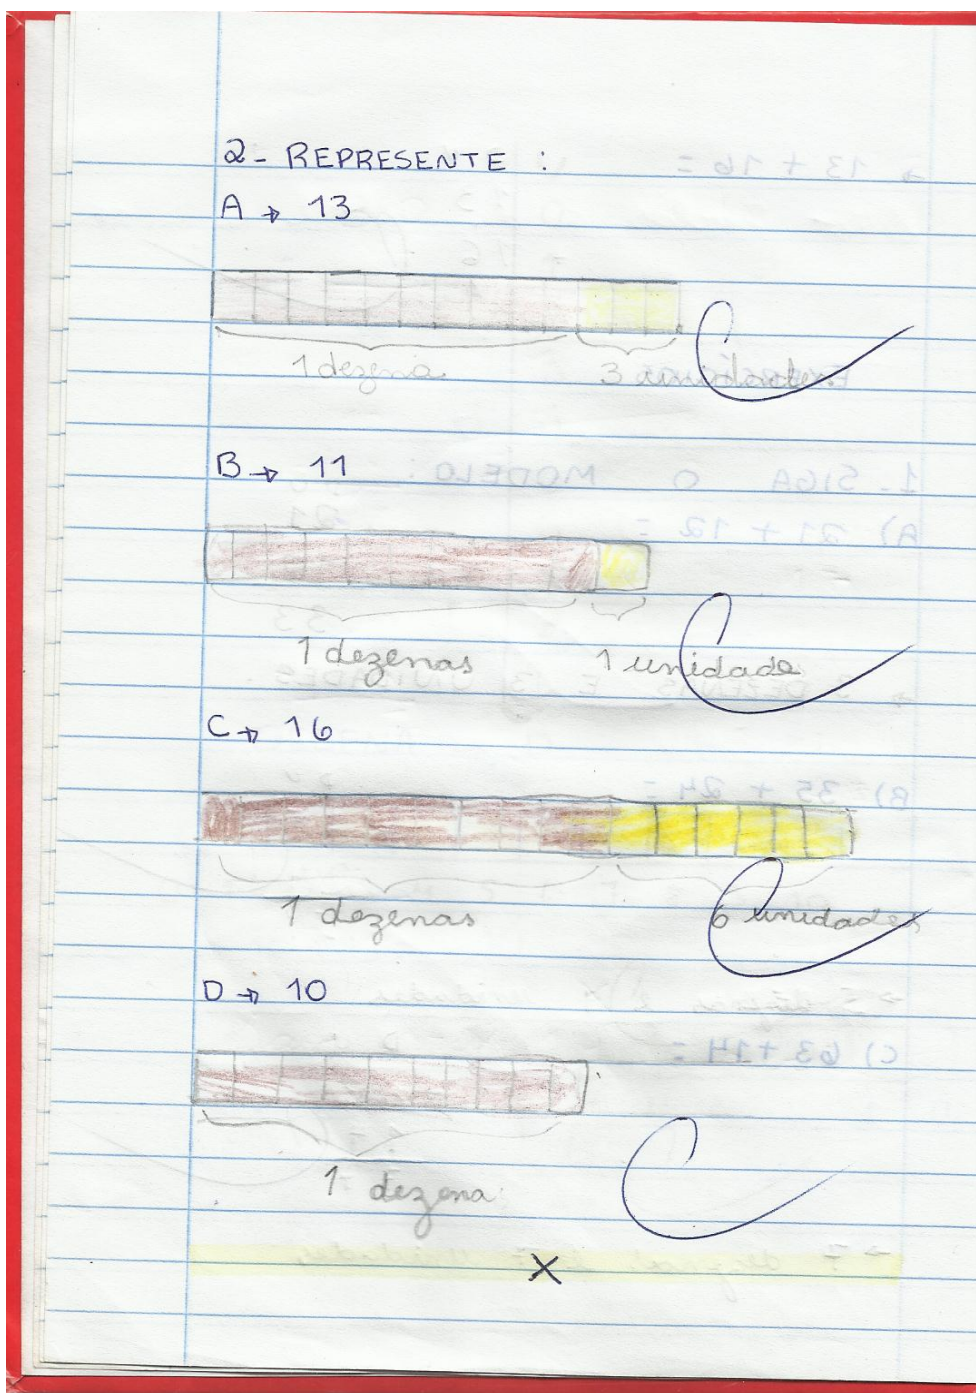 2- REPRESENTE :
A → 13
1 dezena 3 unidades
B → 11
1 dezenas 1 unidade
C → 16
1 dezenas 6 unidades
D → 10
1 dezena
X